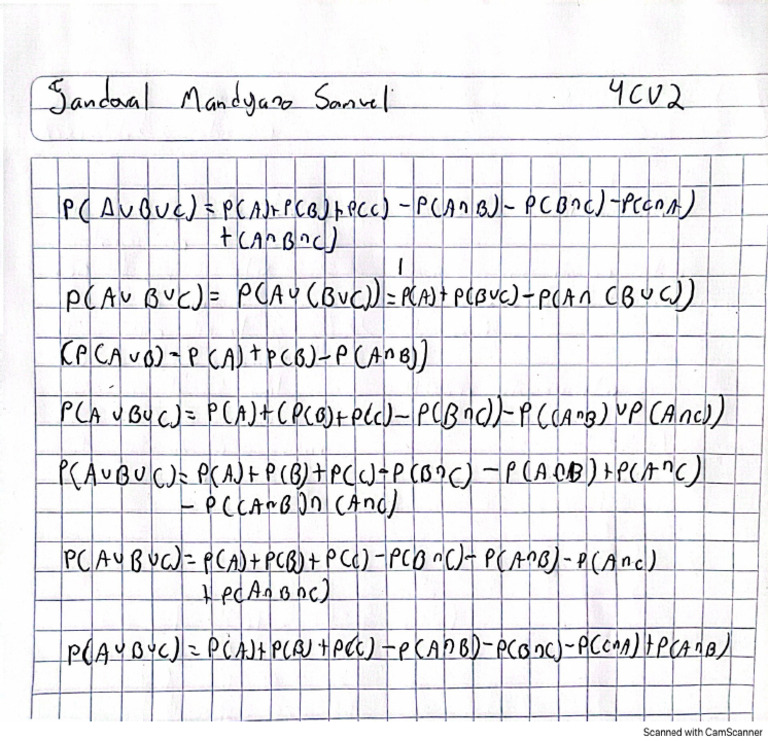 Sandoval Mandujano Samuel 4CV2
P(A∪B∪C) = P(A)+P(B)+P(C) - P(A∩B) - P(B∩C) - P(C∩A)
+ (A∩B∩C)
P(A∪B∪C) = P(A∪(B∪C)) = P(A) + P(B∪C) - P(A∩(B∪C))
(P(A∪B) = P(A) + P(B) - P(A∩B))
P(A∪B∪C) = P(A) + (P(B)+P(C) - P(B∩C)) - P((A∩B)∪P(A∩C))
P(A∪B∪C) = P(A) + P(B) + P(C) - P(B∩C) - P(A∩B) + P(A∩C)
- P((A∩B)∩(A∩C)
P(A∪B∪C) = P(A)+P(B)+P(C) - P(B∩C) - P(A∩B) - P(A∩C)
+ P(A∩B∩C)
P(A∪B∪C) = P(A)+P(B)+P(C) - P(A∩B) - P(B∩C) - P(C∩A) + P(A∩B)
Scanned with CamScanner